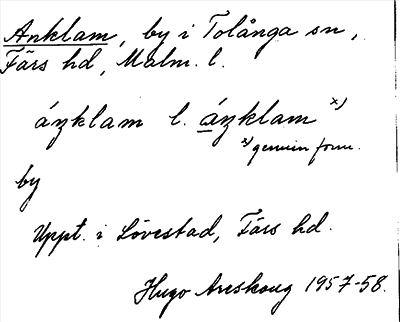 Anklam, by i Tolånga sn,
Färs hd, Malm. l.
áŋklam l. áŋklam x)
x) genuin form.
by
Uppt. i Lövestad, Färs hd.
Hugo Areskoug 1957-58.